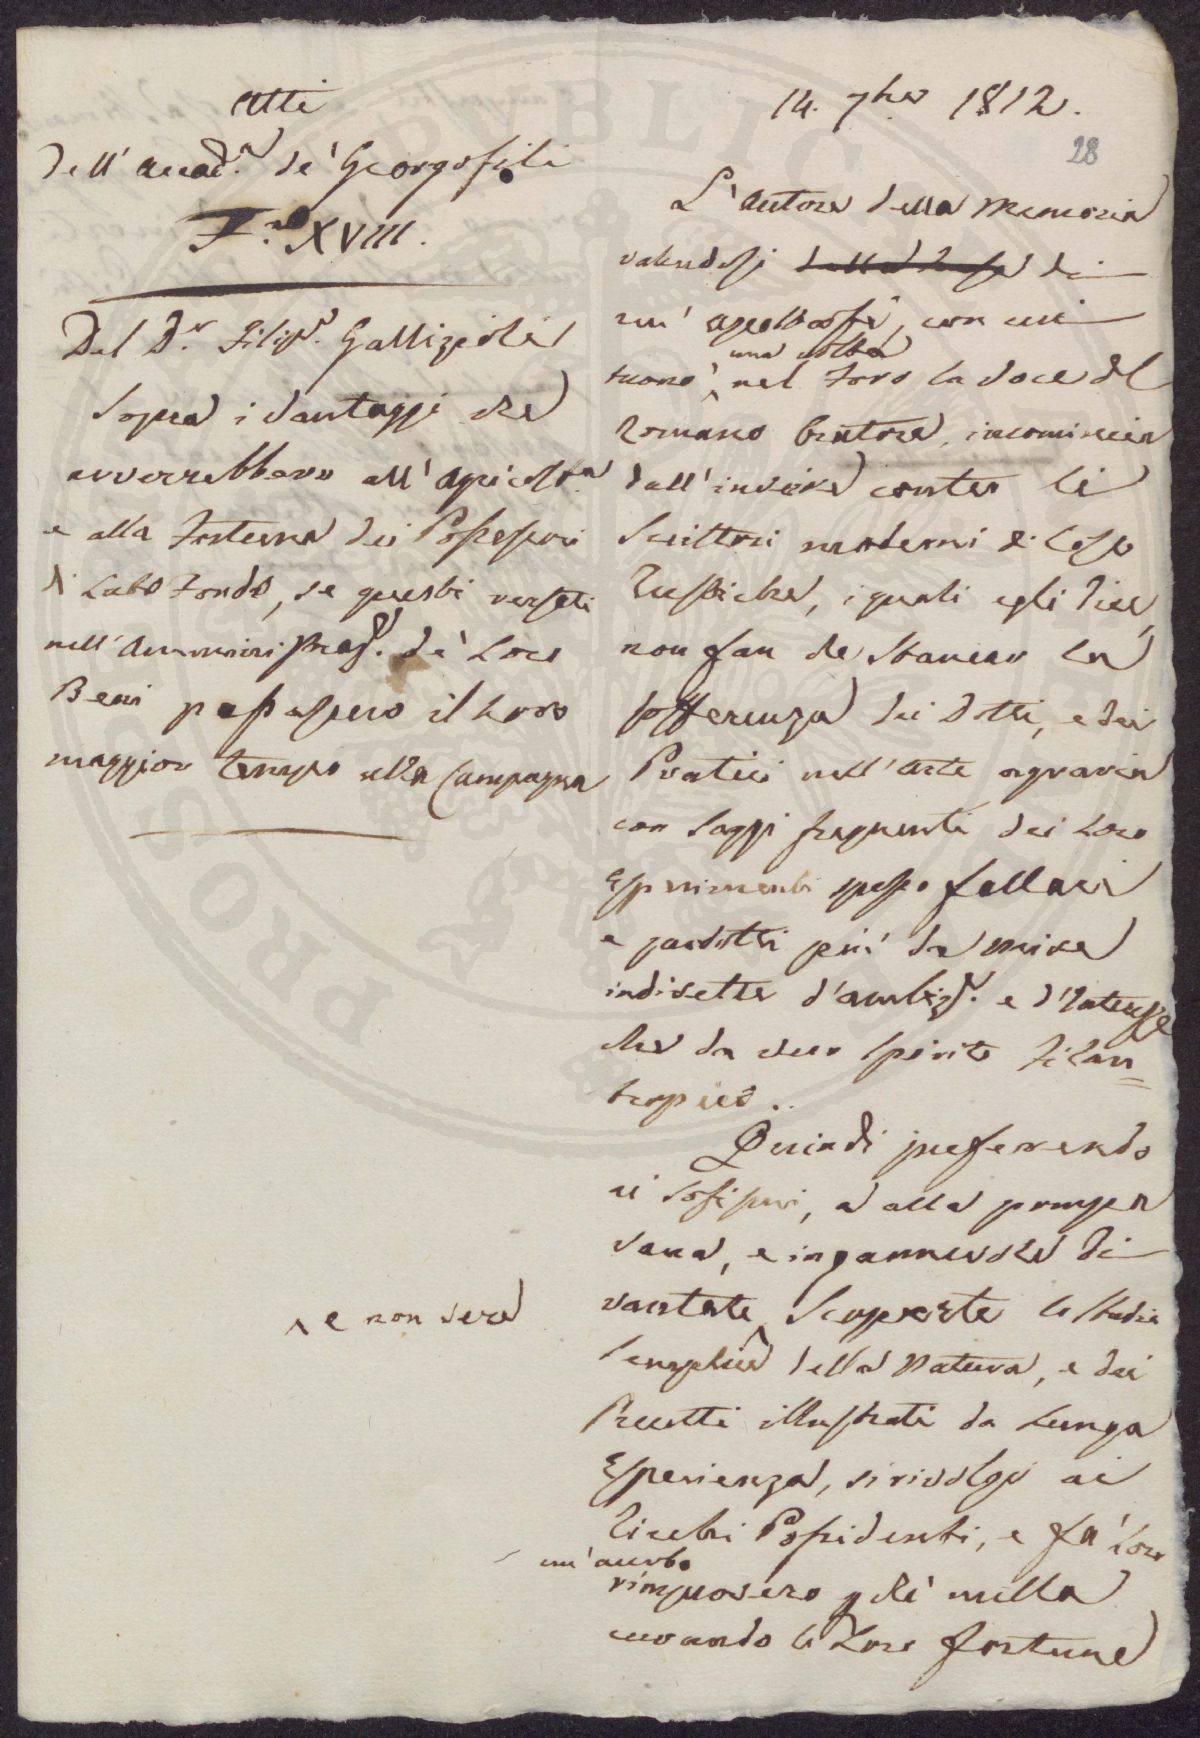 Atti
dell' Accad.a de' Georgofili
N.ro XVIII.
Del D.r Filip.o Gallizioli
Sopra i vantaggi che
avverrebbero all' Agricolt.a
e alla Fortuna dei Possessori
di Lato Fondo, se questi versati
nell' Amministraz.e de' Loro
Beni passassero il Loro
maggior tempo alla Campagna
^ e non vere
14. 7bre 1812.
28
L' Autore della Memoria
valendosi di
un' apostrofe, con cui
tuonò ^ una volta nel Foro la voce del
Romano Oratore, incomincia
dall' inveire contro li
Scrittori moderni di Cose
Rustiche, i quali egli dice,
non fan che stancar la
sofferenza dei Dotti, e dei
Pratici nell' Arte agraria
con Saggi frequenti dei Loro
Esperimenti spesso fallaci
e prodotti più da mire
indirette d' ambiz.e e d' Interesse
che da vero Spirito Filan=
tropico.
Quindi preferendo
ai Sofismi, e alla pompa
vana, e ingannevole di
vantate ^ Scoperte lo Studio
Semplice della Natura, e dei
Precetti illustrati da Lunga
Esperienza, si rivolge ai
Ricchi Possidenti, e fa' Loro
un' acerbo
rimprovero p chè nulla
curando le Loro fortune